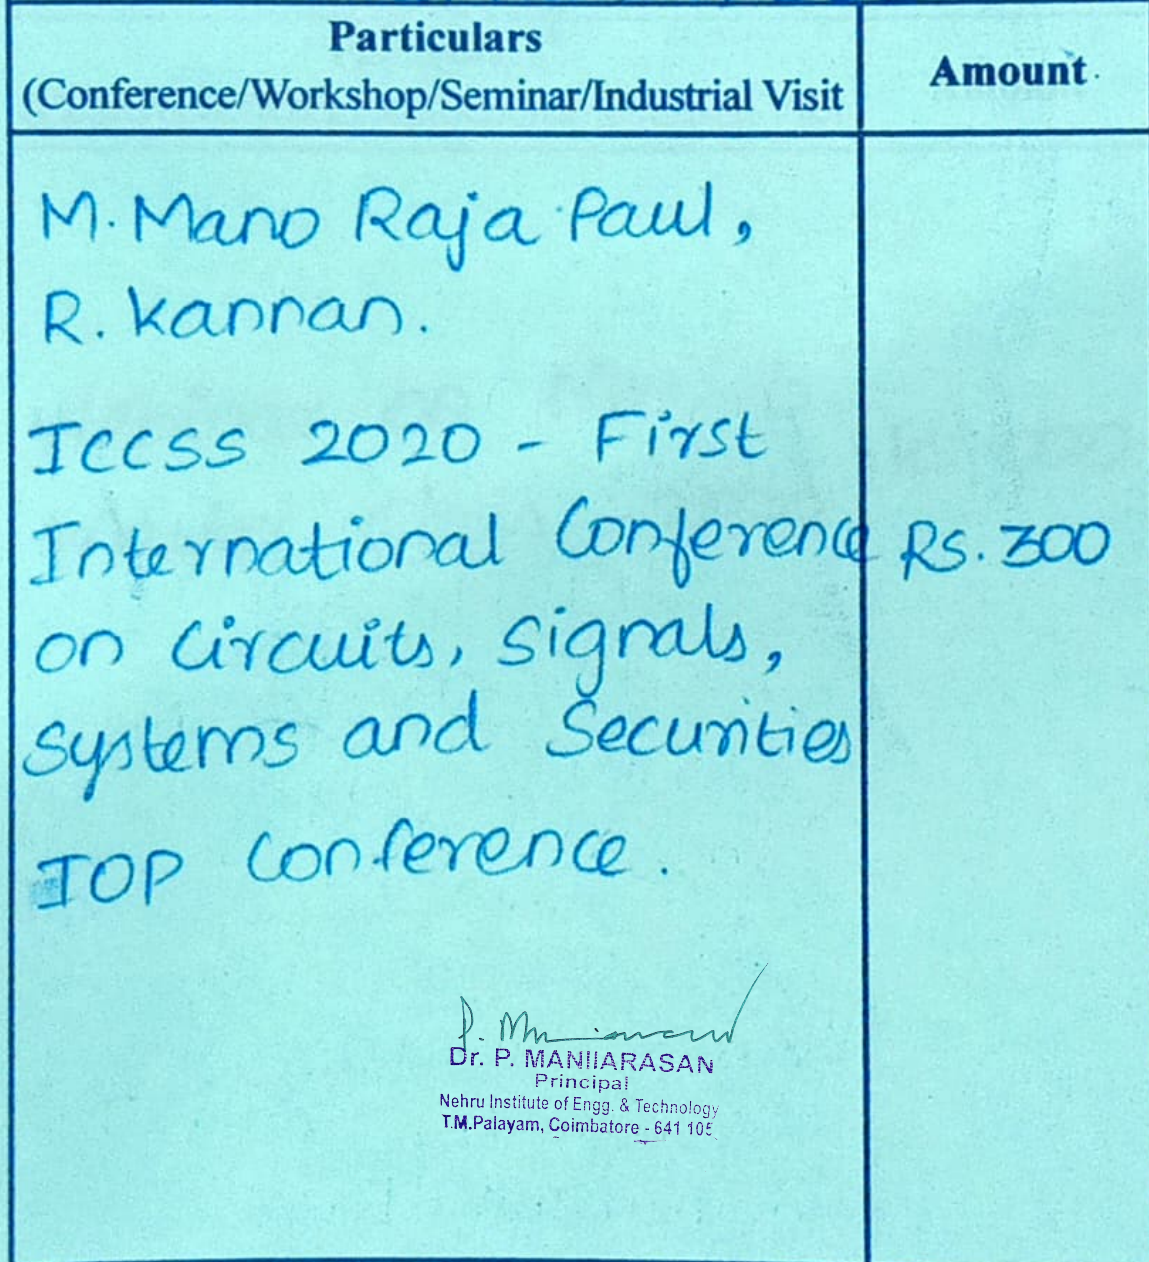 Particulars
(Conference/Workshop/Seminar/Industrial Visit
Amount
M. Mano Raja Paul,
R. Kannan.
ICCSS 2020 - First
International Conference Rs. 300
on Circuits, Signals,
Systems and Securities
IOP Conference.
Dr. P. MANIIARASAN
Principal
Nehru Institute of Engg. & Technology
T.M.Palayam, Coimbatore - 641 105